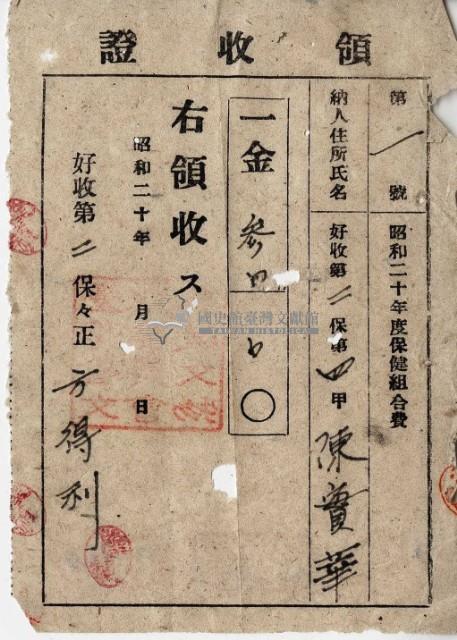 領收證
第一號 昭和二十年度保健組合費
納人住所氏名 好收第二保第四甲 陳賣華
一金 參
右領收ス
昭和二十年 月 日
好收第二保々正 方得利
國史館臺灣文獻館
TAIWAN HISTORICA